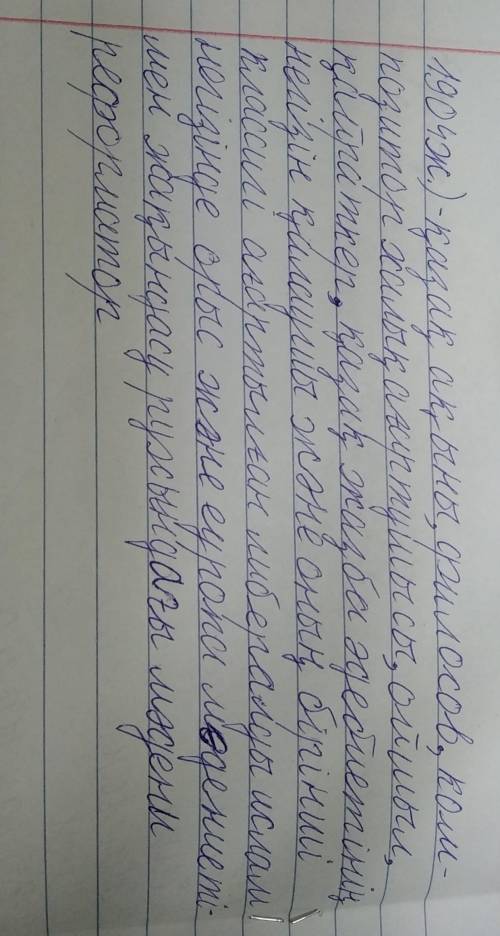 1904ж) - қазақ ақыны, философ, ком-
позитор, халық ағартушысы, ойшыл,
қайраткер, қазақ жазба әдебиетінің
негізін қалаушы және оның бірінші
классигі ағартылған либералды ислам
негізінде орыс және еуропа мәдениеті-
мен жақындасу рухындағы мәдени
реформатор